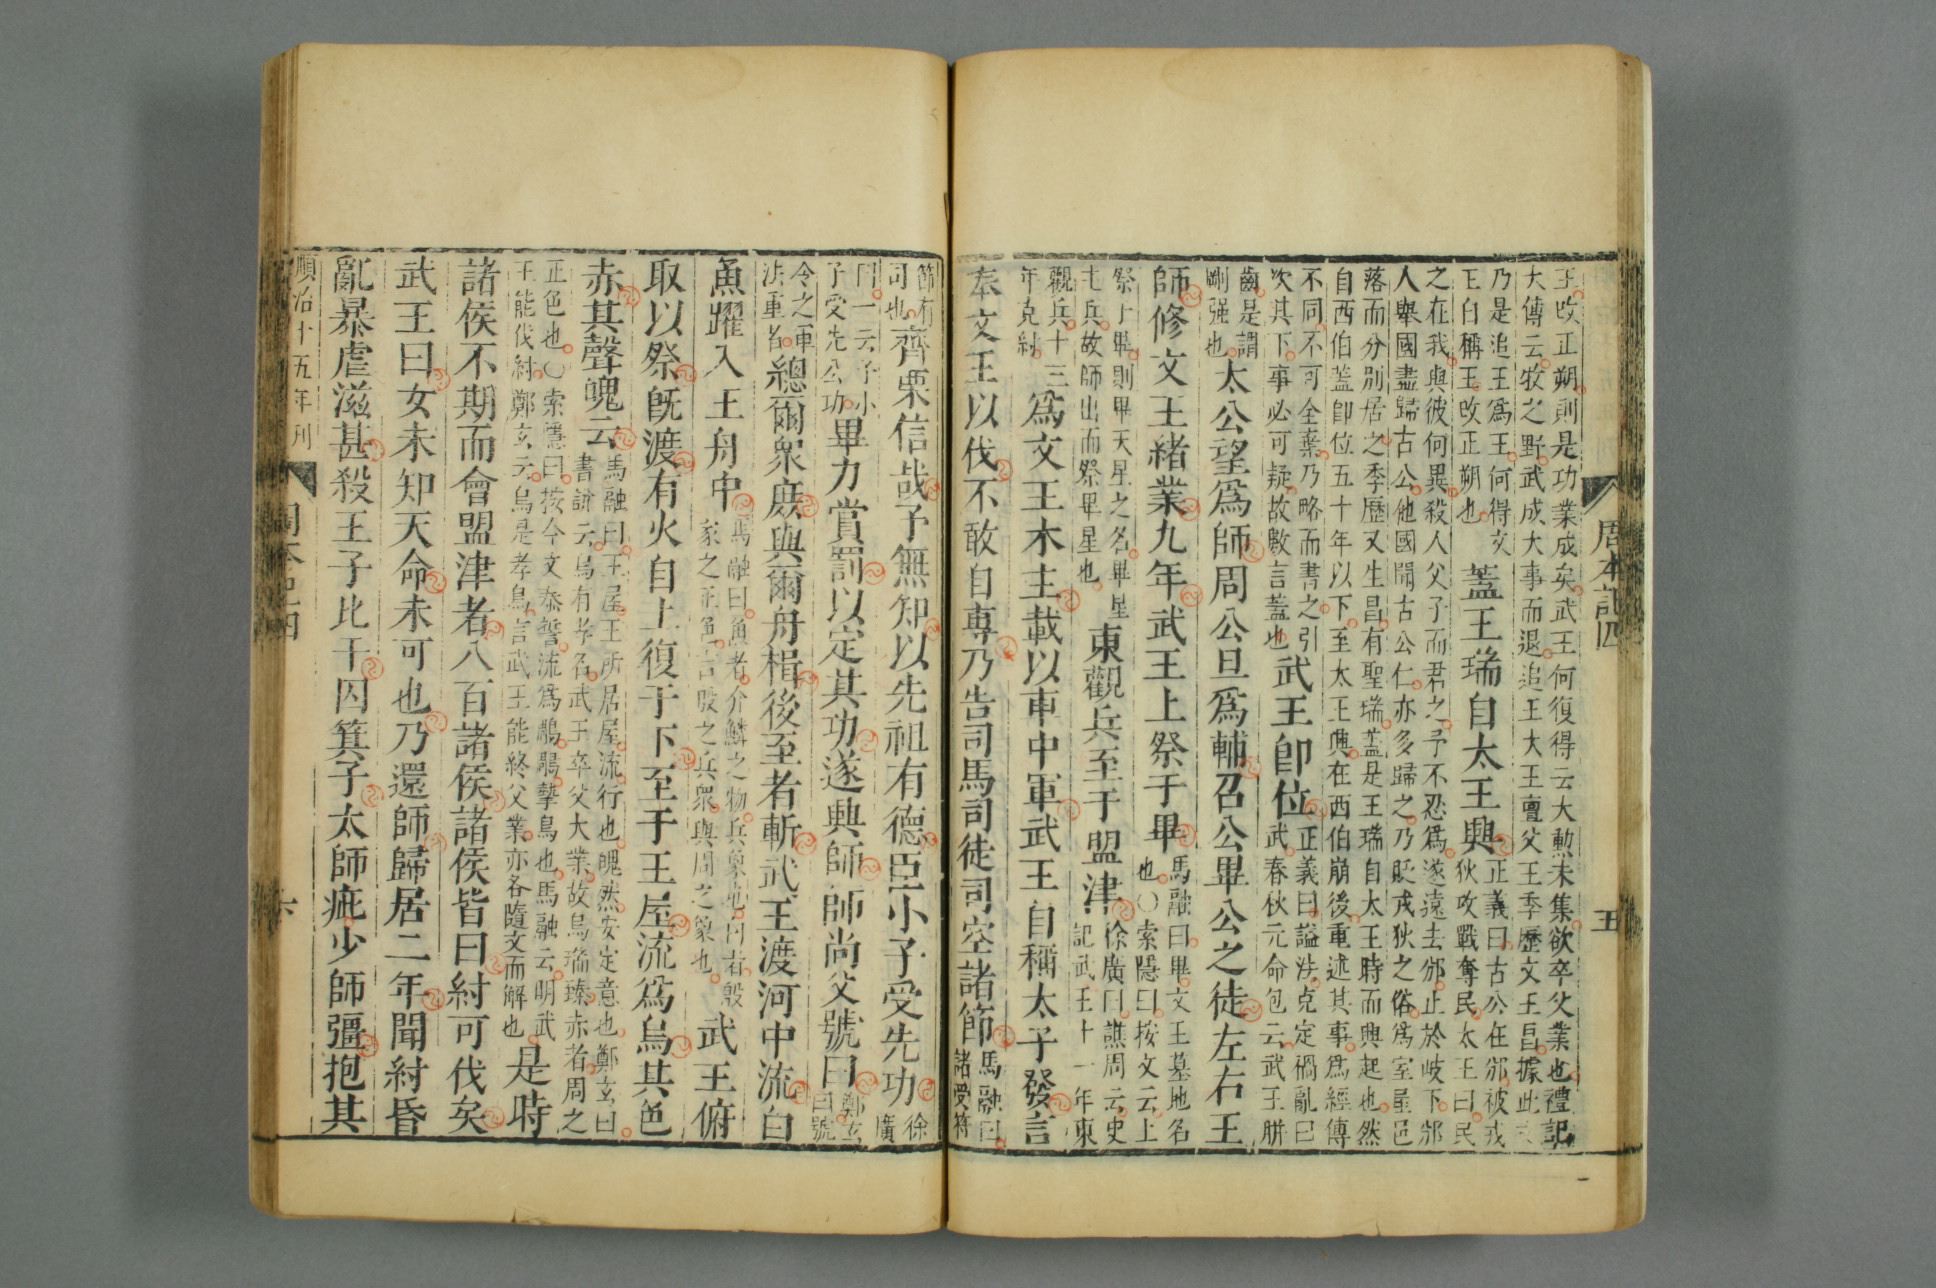 王改正朔則是功業成矣武王何復得云大勲未集欲卒父業也禮記
大傳云牧之野武成大事而退追王大王亶父王季歷文王昌據此
乃是追王爲王何得文
王自稱王改正朔也
蓋王瑞自太王興
正義曰古公在邠被戎
狄攻戰奪民太王曰民
之在我與彼何異殺人父子而君之予不忍爲遂遠去邠止於岐下邠
人舉國盡歸古公他國聞古公仁亦多歸之乃貶戎狄之俗爲室屋邑
落而分別居之季歷又生昌有聖瑞蓋是王瑞自太王時而興起也然
自西伯蓋卽位五十年以下至太王興在西伯崩後重述其事爲經傳
不同不可全棄乃略而書之引
次其下事必可疑故數言蓋也
武王卽位
正義曰謚法克定禍亂曰
武春秋元命包云武王騈
齒是謂
剛强也
太公望爲師周公旦爲輔召公畢公之徒左右王
師修文王緒業九年武王上祭于畢
馬融曰畢文王墓地名
也○索隱曰按文云上
祭于畢則畢天星之名畢星
主兵故師出而祭畢星也
東觀兵至于盟津
徐廣曰譙周云史
記武王十一年東
觀兵十三
年克紂
爲文王木主載以車中軍武王自稱太子發言
奉文王以伐不敢自專乃告司馬司徒司空諸節
馬融曰
諸受符
節有
司也
齊栗信哉予無知以先祖有德臣小子受先功
徐
廣
曰一云予小
子受先公功
畢力賞罰以定其功遂興師師尚父號曰
鄭玄
曰號
令之軍
法重者
總爾衆庶與爾舟楫後至者斬武王渡河中流白
魚躍入王舟中
馬融曰魚者介鱗之物兵象也白者殷
家之正色言殷之兵衆與周之象也
武王俯
取以祭旣渡有火自上復于下至于王屋流爲烏其色
赤其聲魄云
馬融曰王屋王所居屋流行也魄然安定意也鄭玄曰
書說云烏有孝名武王卒父大業故烏瑞臻赤者周之
正色也○索隱曰按今文泰誓流爲鵰鵰摯鳥也馬融云明武
王能伐紂鄭玄云烏是孝鳥言武王能終父業亦各隨文而解也
是時
諸侯不期而會盟津者八百諸侯諸侯皆曰紂可伐矣
武王曰女未知天命未可也乃還師歸居二年聞紂昏
亂暴虐滋甚殺王子比干囚箕子太師疵少師彊抱其
周本記四
五
順治十五年刊
周本記四
六